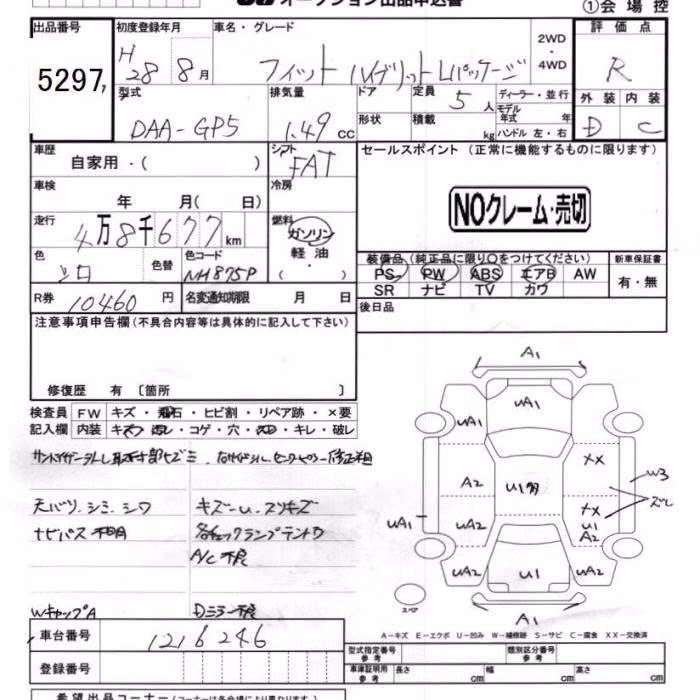 オークション出品申込書
①会場控
出品番号
初度登録年月
車名・グレード
2WD
・
4WD
評価点
5297
H 28年8月
フィットハイブリットLパッケージ
R
型式
排気量
ドア
定員 5人
ディーラー・並行
外装
内装
DAA-GP5
1.49 cc
形状
積載 kg
モデル年式 年
ハンドル 左・右
D
C
車歴
自家用・( )
シフト
FAT
セールスポイント (正常に機能するものに限ります)
車検
年 月( 日)
冷房
NOクレーム・売切
走行
4万8千677km
燃料
ガソリン
軽油
・( )
色
シロ
色替
色コード
NH875P
装備品(純正品に限り○をつけてください)
新車保証書
PS PW ABS エアB AW
SR ナビ TV カワ
有・無
R券 10460円
名変通知期限 月 日
後日品
注意事項申告欄(不具合内容等は具体的に記入して下さい)
修復歴 有 〔箇所 〕
検査員
記入欄
FW キズ・飛石・ヒビ割・リペア跡・×要
内装 キズ・汚レ・コゲ・穴・スレ・キレ・破レ
天バリ、シミ、シワ
キズーU、スリキズ
ナビパス不明
各チェックランプテントウ
A/C不良
WキャップA
Dミラー不良
A1
UA1
UA1
XX
W3
A2
U1
ズレ
UA1
UA2
XX
U1
A2
UA2
U1
UA2
スペア
A1
A―キズ E―エクボ U―凹み W―補修跡 S―サビ C―腐食 XX―交換済
車台番号 1216246
登録番号
型式指定番号 参考
類別区分番号 参考
車庫証明用 参考
長さ cm
幅 cm
高さ cm
希望出品コーナー